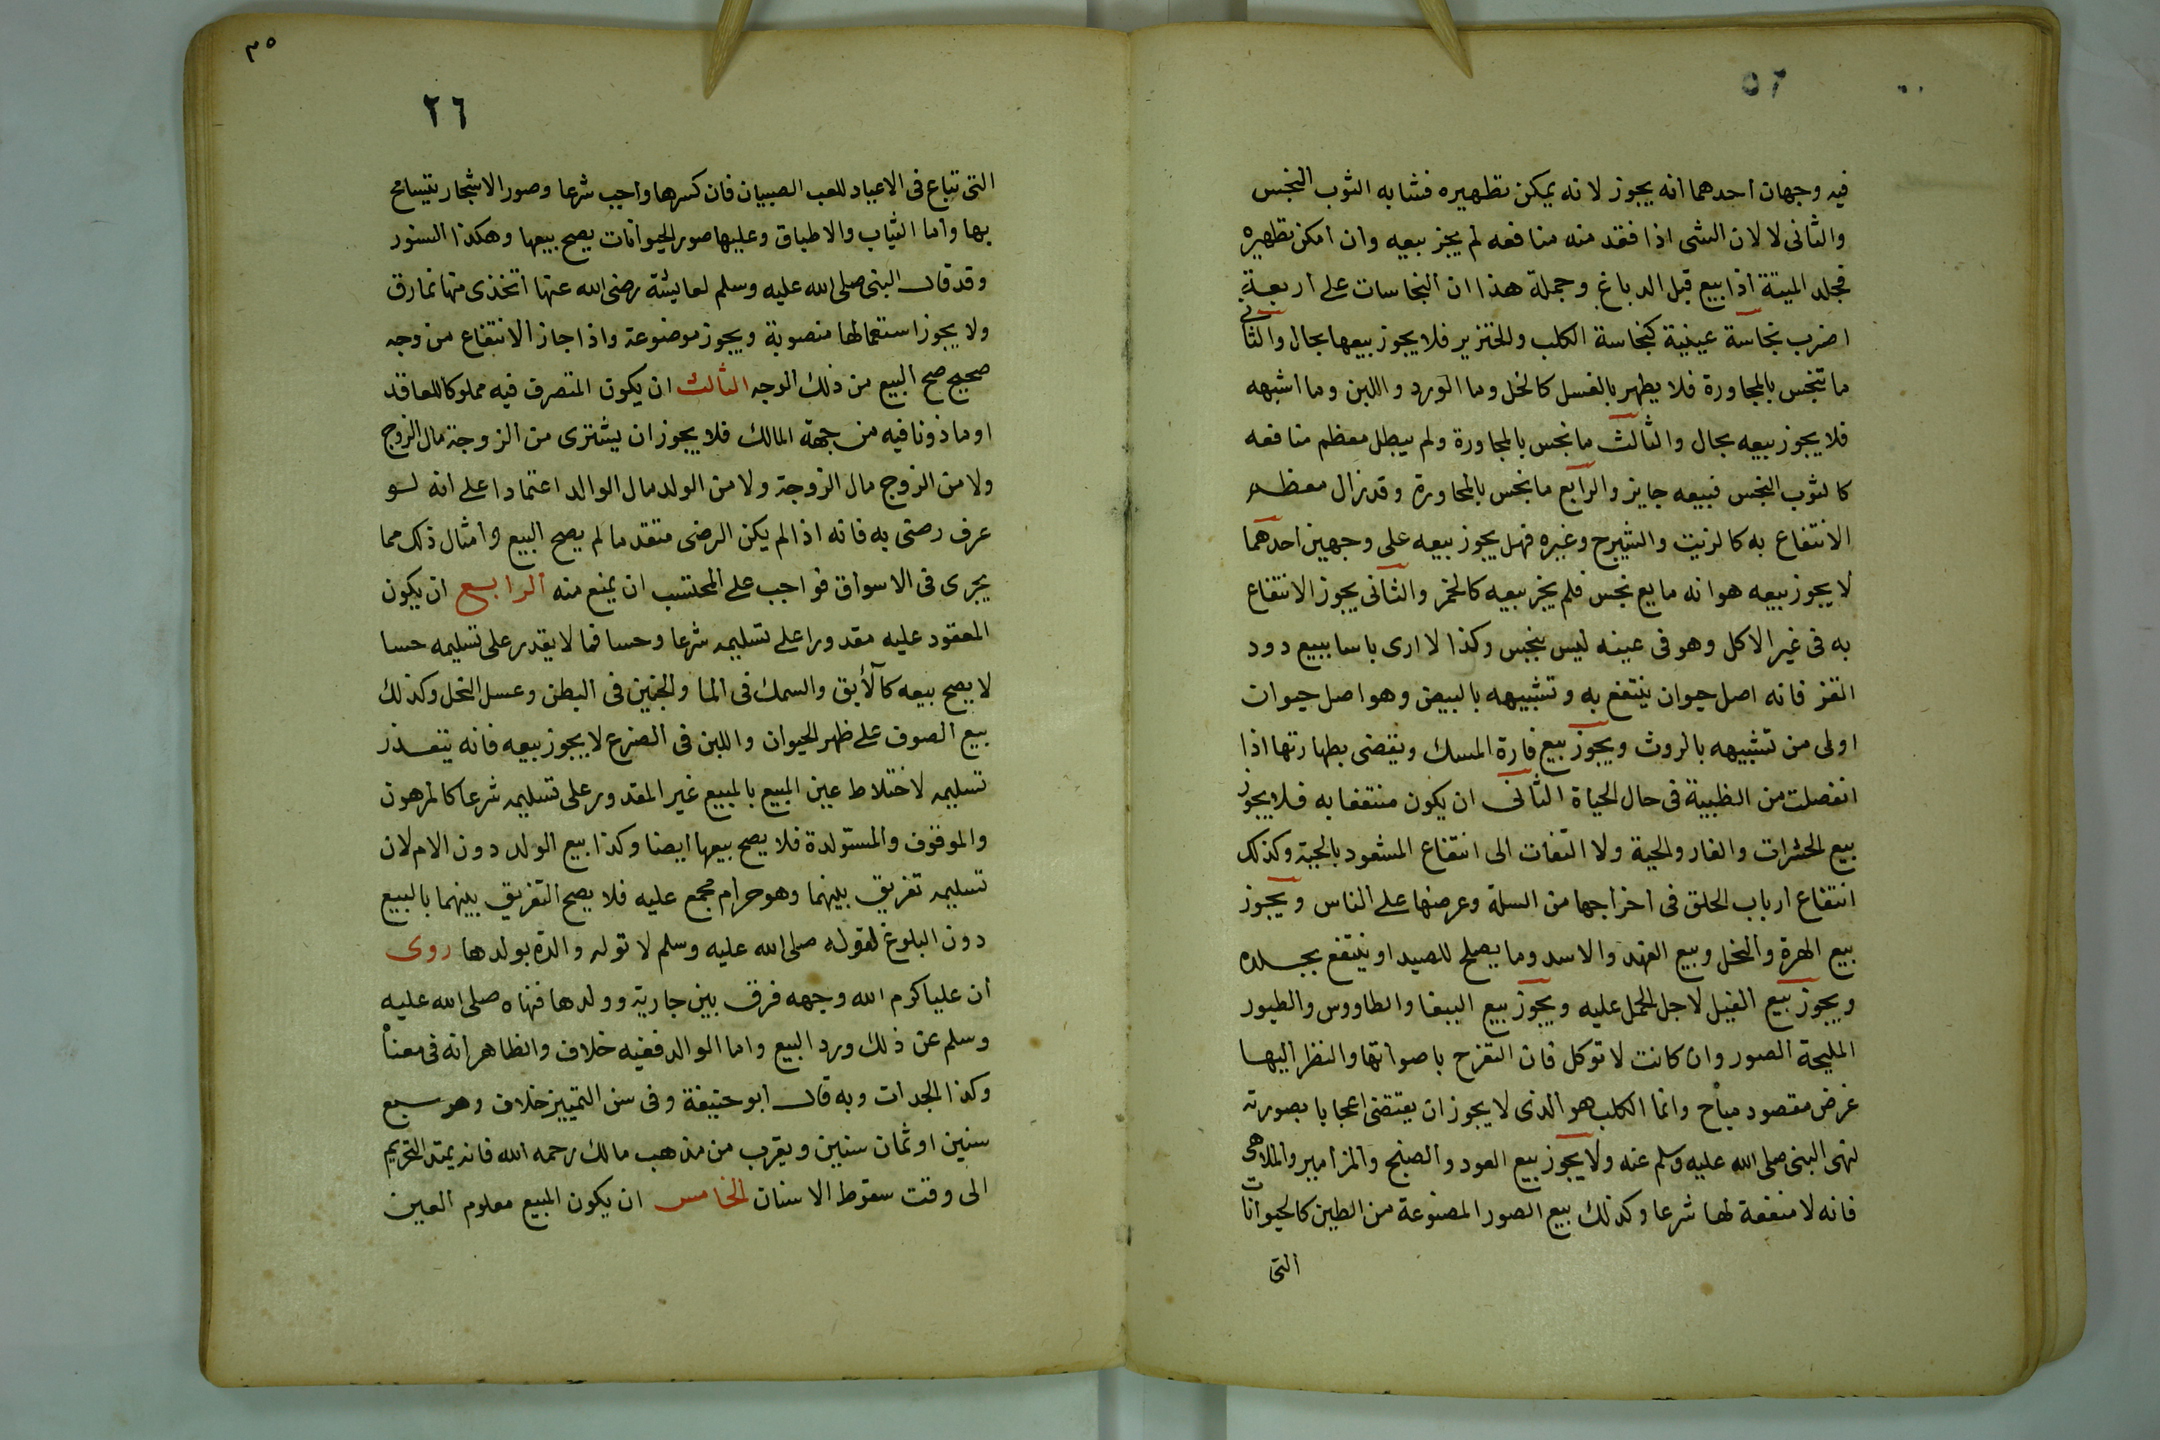 ٥٦
فيه وجهان احدهما انه يجوز لانه يمكن تطهيره فشابه الثوب النجس
والثانى لا لان الشى اذا فقد منه منافعه لم يجز بيعه وان امكن تطهيره
فجلد الميتة اذا بيع قبل الدباغ وجملة هذا ان النجاسات على اربعة
اضرب نجاسة عينية كنجاسة الكلب والخنزير فلا يجوز بيعها بحال والثانى
ما تنجس بالمجاورة فلا يطهر بالغسل كالخل وما الورد واللبن وما اشبهه
فلا يجوز بيعه بحال والثالث ما نجس بالمجاورة ولم يبطل معظم منافعه
كالثوب النجس فبيعه جايز والرابع ما نجس بالمجاورة وقد زال معظم
الانتفاع به كالزيت والشيرج وغيره فهل يجوز بيعه على وجهين احدهما
لا يجوز بيعه هو انه مايع نجس فلم يجز بيعه كالخمر والثانى يجوز الانتفاع
به فى غير الاكل وهو فى عينه ليس بنجس وكذا لا ارى باسا ببيع دود
القز فانه اصل حيوان ينتفع به وتشبيهه بالبيض وهو اصل حيوان
اولى من تشبيهه بالروث ويجوز بيع فارة المسك ونقضى بطهارتها اذا
انفصلت من الظبية فى حال الحياة الثانى ان يكون منتفعا به فلا يجوز
بيع الحشرات والفار والحية ولا التفات الى انتفاع المشعود بالحية وكذلك
انتفاع ارباب الحلق فى اخراجها من السلة وعرضها على الناس ويجوز
بيع الهرة والنحل وبيع الفهد والاسد وما يصلح للصيد او ينتفع بجلده
ويجوز بيع الفيل لاجل الحمل عليه ويجوز بيع الببغا والطاووس والطيور
المليحة الصور وان كانت لا توكل فان التفرج باصواتها والنظر اليها
غرض مقصود مباح وانما الكلب هو الذى لا يجوز ان يقتضى اعجابا بصورته
لنهى النبى صلى الله عليه وسلم عنه ولا يجوز بيع العود والصنج والمزامير والملاهى
فانه لا منفعة لها شرعا وكذلك بيع الصور المصنوعة من الطين كالحيوانات
التى
٣٥
٢٦
التى تباع فى الاعياد للعب الصبيان فان كسرها واجب شرعا وصور الاشجار يتسامح
بها واما الثياب والاطباق وعليها صور الحيوانات يصح بيعها وهكذا الستور
وقد قال النبى صلى الله عليه وسلم لعايشة رضى الله عنها اتخذى منها نمارق
ولا يجوز استعمالها منصوبة ويجوز موضوعة واذا جاز الانتفاع من وجه
صحيح صح البيع من ذلك الوجه الثالث ان يكون المتصرف فيه مملوكا للعاقد
او ماذونا فيه من جهة المالك فلا يجوز ان يشترى من الزوجة مال الزوج
ولا من الزوج مال الزوجة ولا من الولد مال الوالد اعتمادا على انه لو
عرف رضى به فانه اذا لم يكن الرضى متقدما لم يصح البيع وامثال ذلك مما
يجرى فى الاسواق فواجب على المحتسب ان يمنع منه الرابع ان يكون
المعقود عليه مقدورا على تسليمه شرعا وحسا فما لا يقدر على تسليمه حسا
لا يصح بيعه كالآبق والسمك فى الما والجنين فى البطن وعسل النحل وكذلك
بيع الصوف على ظهر الحيوان واللبن فى الضرع لا يجوز بيعه فانه يتعذر
تسليمه لاختلاط عين المبيع بالمبيع غير المقدور على تسليمه شرعا كالمرهون
والموقوف والمستولدة فلا يصح بيعها ايضا وكذا بيع الولد دون الام لان
تسليمه تفريق بينهما وهو حرام مجمع عليه فلا يصح التفريق بينهما بالبيع
دون البلوغ لقوله صلى الله عليه وسلم لا توله والدة بولدها روى
أن عليا كرم الله وجهه فرق بين جارية وولدها فنهاه صلى الله عليه
وسلم عن ذلك ورد البيع واما الوالد ففيه خلاف والظاهر انه فى معناه
وكذا الجدات وبه قال ابو حنيفة وفى سن التمييز خلاف وهو سبع
سنين او ثمان سنين ويقرب من مذهب مالك رحمه الله فانه يمتد التحريم
الى وقت سقوط الاسنان الخامس ان يكون المبيع معلوم العين